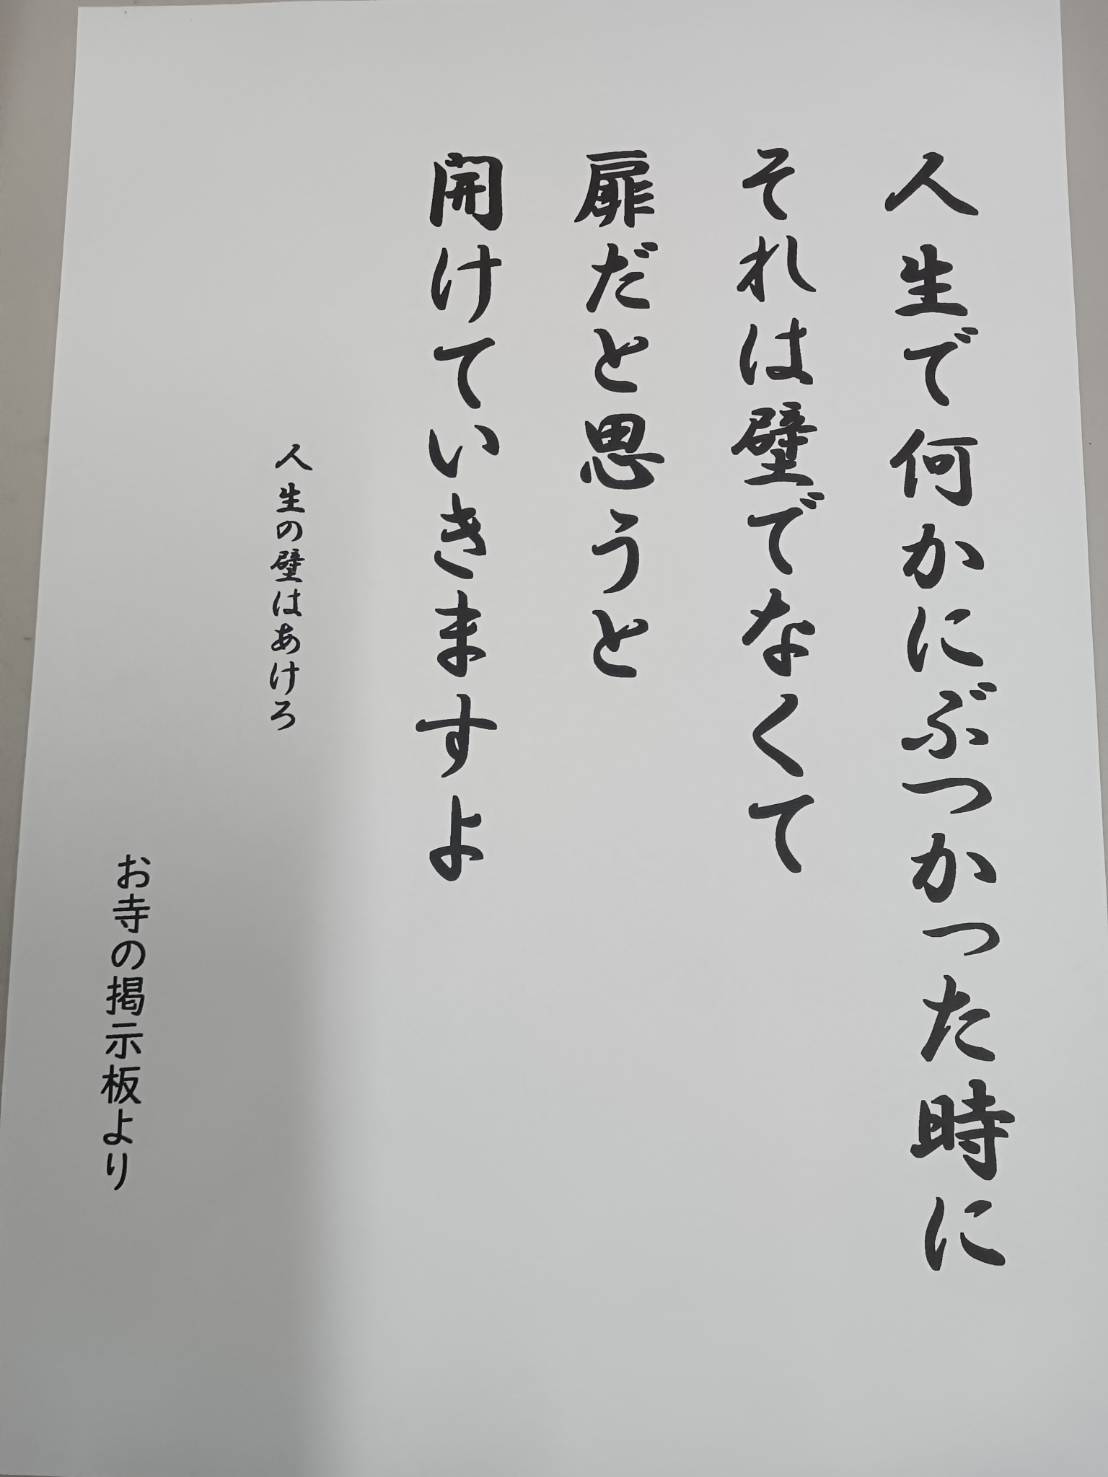 人生で何かにぶつかった時に
それは壁でなくて
扉だと思うと
開けていきますよ
人生の壁はあけろ
お寺の掲示板より